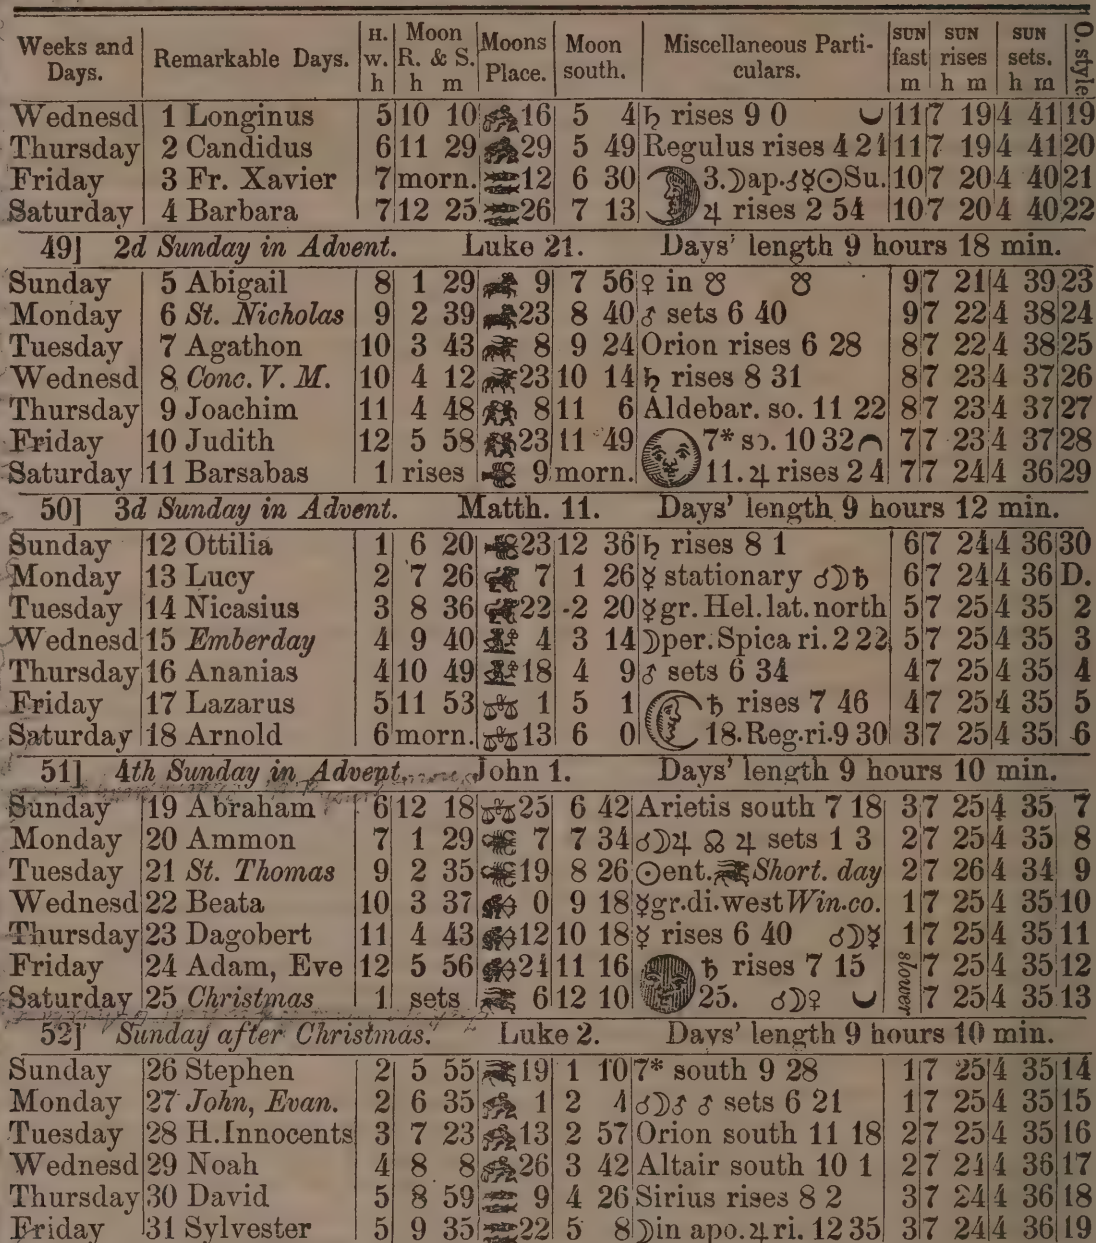 Weeks and Days. | Remarkable Days. | H. w. h | Moon R. & S. h m | Moons Place. | Moon south. | Miscellaneous Particulars. | SUN fast m | SUN rises h m | SUN sets. h m | O. style
Wednesd 1 Longinus 5 10 10 16 5 4 ♄ rises 9 0 11 7 19 4 41 19
Thursday 2 Candidus 6 11 29 29 5 49 Regulus rises 4 21 11 7 19 4 41 20
Friday 3 Fr. Xavier 7 morn. 12 6 30 3. ☽ ap. ☌☿☉ Su. 10 7 20 4 40 21
Saturday 4 Barbara 7 12 25 26 7 13 ♃ rises 2 54 10 7 20 4 40 22
49] 2d Sunday in Advent. Luke 21. Days' length 9 hours 18 min.
Sunday 5 Abigail 8 1 29 9 7 56 ♀ in ☋ ☋ 9 7 21 4 39 23
Monday 6 St. Nicholas 9 2 39 23 8 40 ♂ sets 6 40 9 7 22 4 38 24
Tuesday 7 Agathon 10 3 43 8 9 24 Orion rises 6 28 8 7 22 4 38 25
Wednesd 8 Conc. V. M. 10 4 12 23 10 14 ♄ rises 8 31 8 7 23 4 37 26
Thursday 9 Joachim 11 4 48 8 11 6 Aldebar. so. 11 22 8 7 23 4 37 27
Friday 10 Judith 12 5 58 23 11 49 7* so. 10 32 7 7 23 4 37 28
Saturday 11 Barsabas 1 rises 9 morn. 11. ♃ rises 2 4 7 7 24 4 36 29
50] 3d Sunday in Advent. Matth. 11. Days' length 9 hours 12 min.
Sunday 12 Ottilia 1 6 20 23 12 36 ♄ rises 8 1 6 7 24 4 36 30
Monday 13 Lucy 2 7 26 7 1 26 ☿ stationary ☌☽♄ 6 7 24 4 36 D.
Tuesday 14 Nicasius 3 8 36 22 2 20 ☿ gr. Hel. lat. north 5 7 25 4 35 2
Wednesd 15 Emberday 4 9 40 4 3 14 ☽ per. Spica ri. 2 22 5 7 25 4 35 3
Thursday 16 Ananias 4 10 49 18 4 9 ♂ sets 6 34 4 7 25 4 35 4
Friday 17 Lazarus 5 11 53 1 5 1 ♄ rises 7 46 4 7 25 4 35 5
Saturday 18 Arnold 6 morn. 13 6 0 18. Reg. ri. 9 30 3 7 25 4 35 6
51] 4th Sunday in Advent. John 1. Days' length 9 hours 10 min.
Sunday 19 Abraham 6 12 18 25 6 42 Arietis south 7 18 3 7 25 4 35 7
Monday 20 Ammon 7 1 29 7 7 34 ☌☽♃ ☊ ♃ sets 1 3 2 7 25 4 35 8
Tuesday 21 St. Thomas 9 2 35 19 8 26 ☉ ent. Short. day 2 7 26 4 34 9
Wednesd 22 Beata 10 3 37 0 9 18 ☿ gr. di. west Win. co. 1 7 25 4 35 10
Thursday 23 Dagobert 11 4 43 12 10 18 ☿ rises 6 40 ☌☽☿ 1 7 25 4 35 11
Friday 24 Adam, Eve 12 5 56 24 11 16 ♄ rises 7 15 slower 7 25 4 35 12
Saturday 25 Christmas 1 sets 6 12 10 25. ☌☽♀ 7 25 4 35 13
52] Sunday after Christmas. Luke 2. Days' length 9 hours 10 min.
Sunday 26 Stephen 2 5 55 19 1 10 7* south 9 28 1 7 25 4 35 14
Monday 27 John, Evan. 2 6 35 1 2 4 ☌☽♂ ♂ sets 6 21 1 7 25 4 35 15
Tuesday 28 H. Innocents 3 7 23 13 2 57 Orion south 11 18 2 7 25 4 35 16
Wednesd 29 Noah 4 8 8 26 3 42 Altair south 10 1 2 7 24 4 36 17
Thursday 30 David 5 8 59 9 4 26 Sirius rises 8 2 3 7 24 4 36 18
Friday 31 Sylvester 5 9 35 22 5 8 ☽ in apo. ♃ ri. 12 35 3 7 24 4 36 19